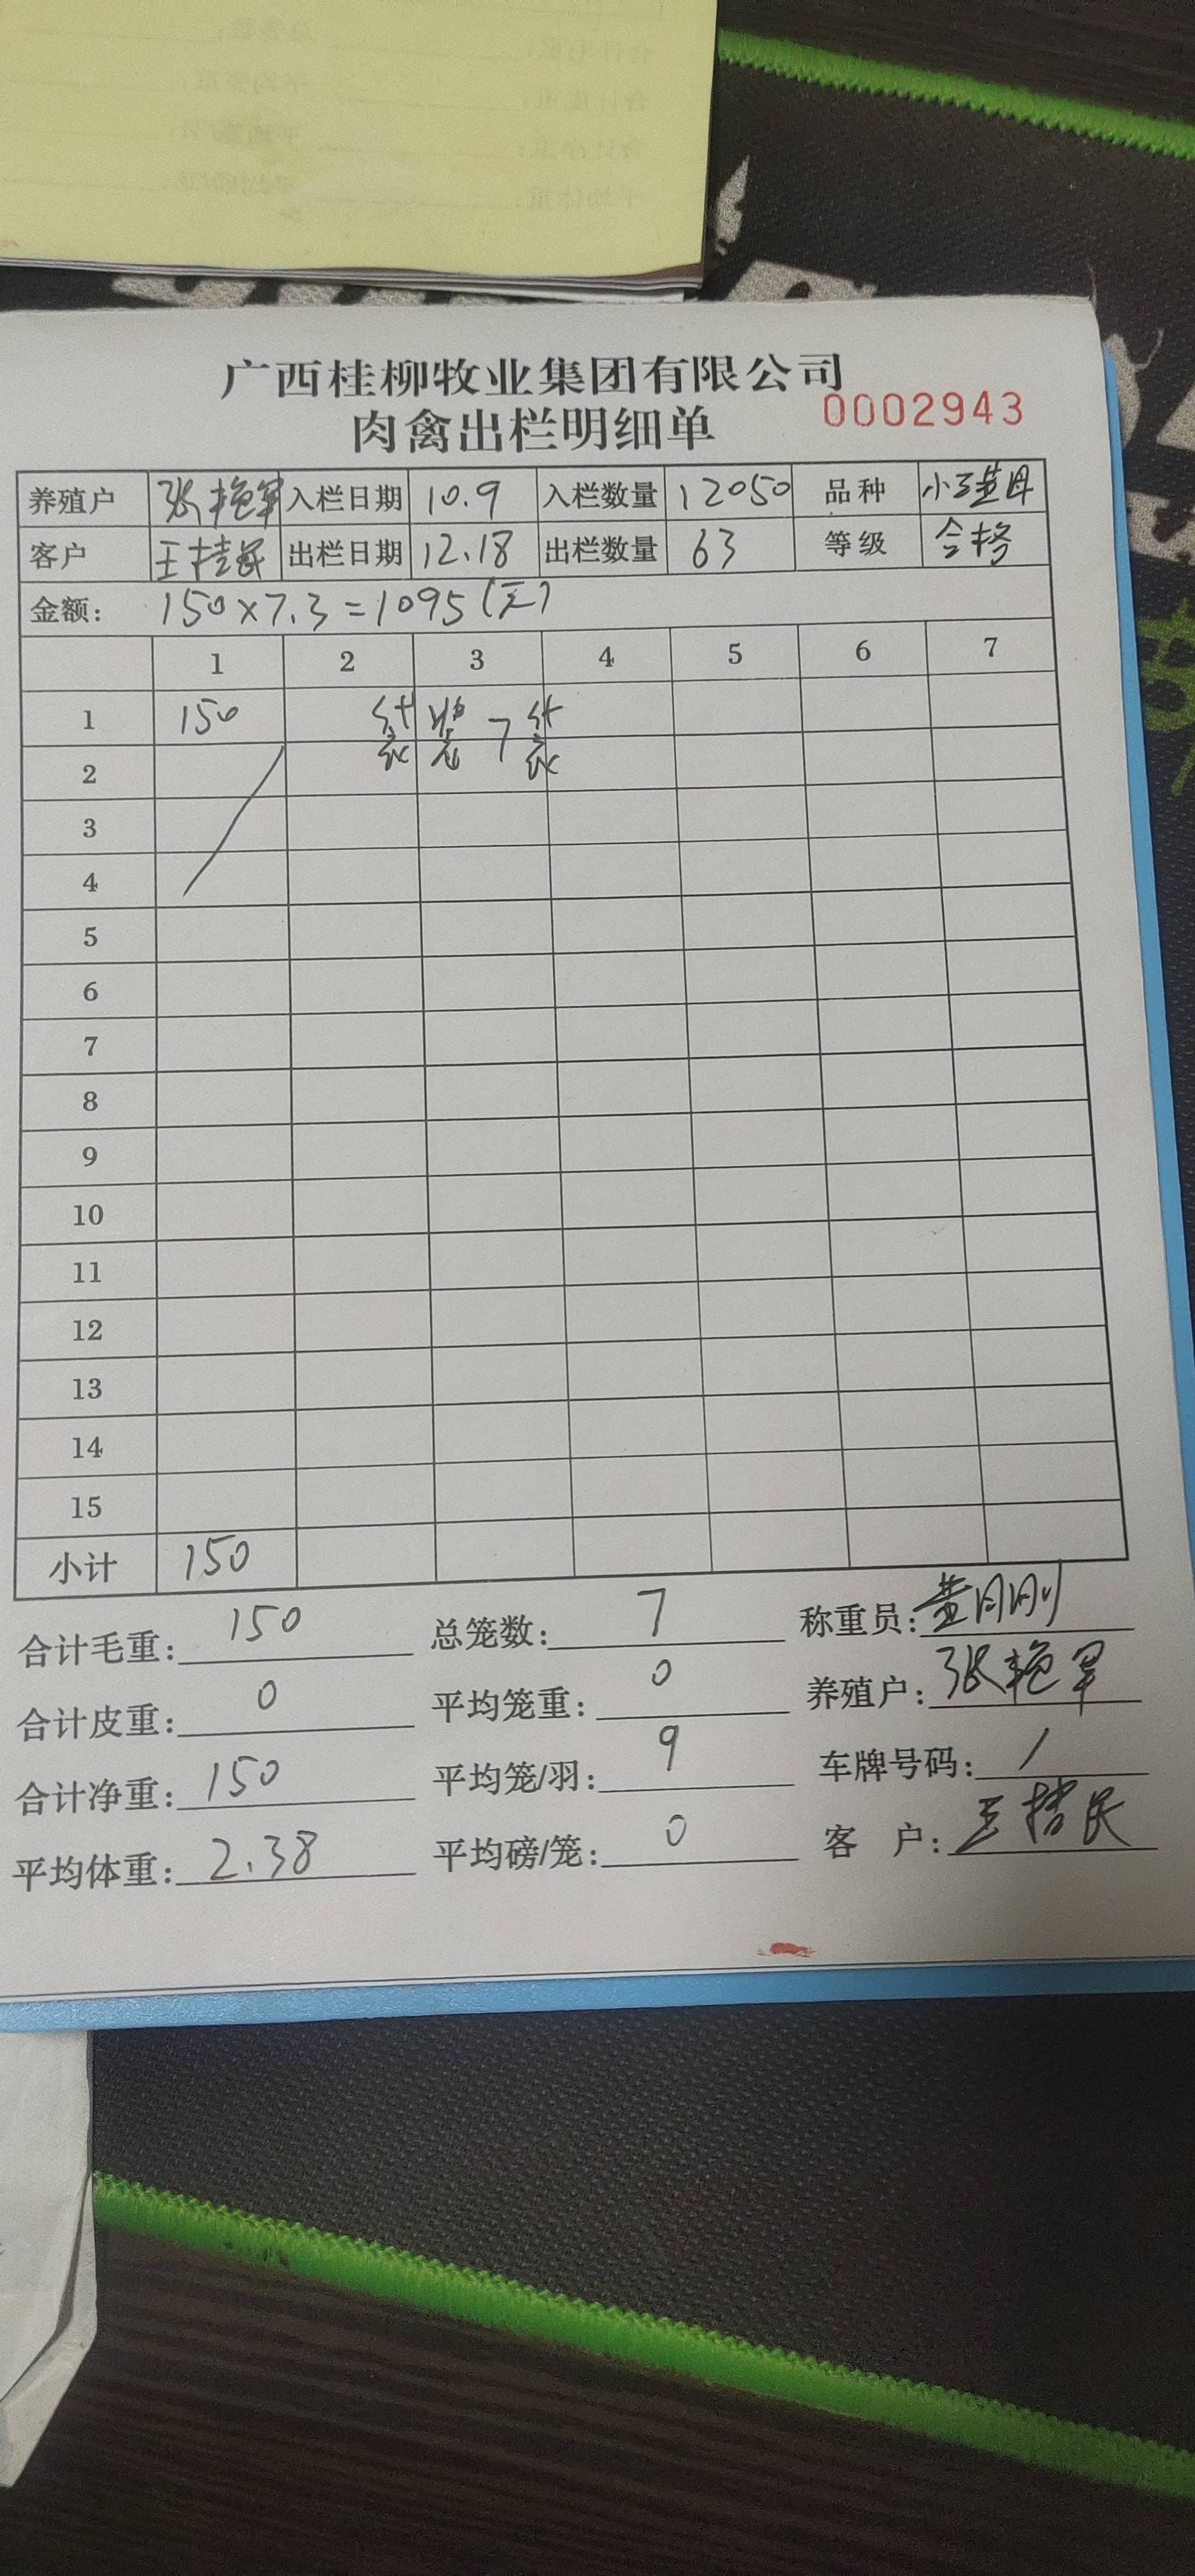 广西桂柳牧业集团有限公司
肉禽出栏明细单 0002943
养殖户 张艳军 入栏日期 10.9 入栏数量 12050 品种 小三黄母
客户 王桂民 出栏日期 12.18 出栏数量 63 等级 合格
金额: 150×7.3=1095(元)
1 2 3 4 5 6 7
1 150 袋装 7袋
2
3
4
5
6
7
8
9
10
11
12
13
14
15
小计 150
合计毛重: 150 总笼数: 7 称重员: 黄刚
合计皮重: 0 平均笼重: 0 养殖户: 张艳军
合计净重: 150 平均笼/羽: 9 车牌号码: /
平均体重: 2.38 平均磅/笼: 0 客 户: 王桂民